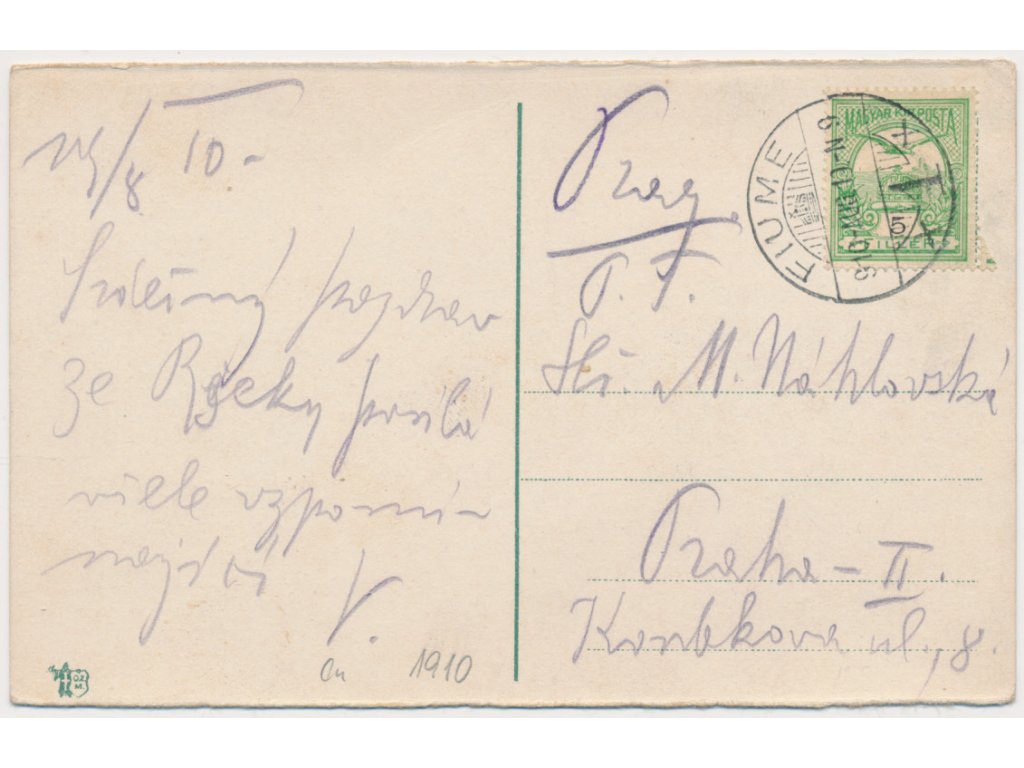 14/8 10-
Srdečný pozdrav
ze Rjeky posílá
vzpomí-
V.
On 1910
Prag.
T. T.
Sl. M. Náhlovská
Praha - II.
ul., 8.
MAGYAR KIR. POSTA
FIUME
910 AUG
T
5
FILLÉR